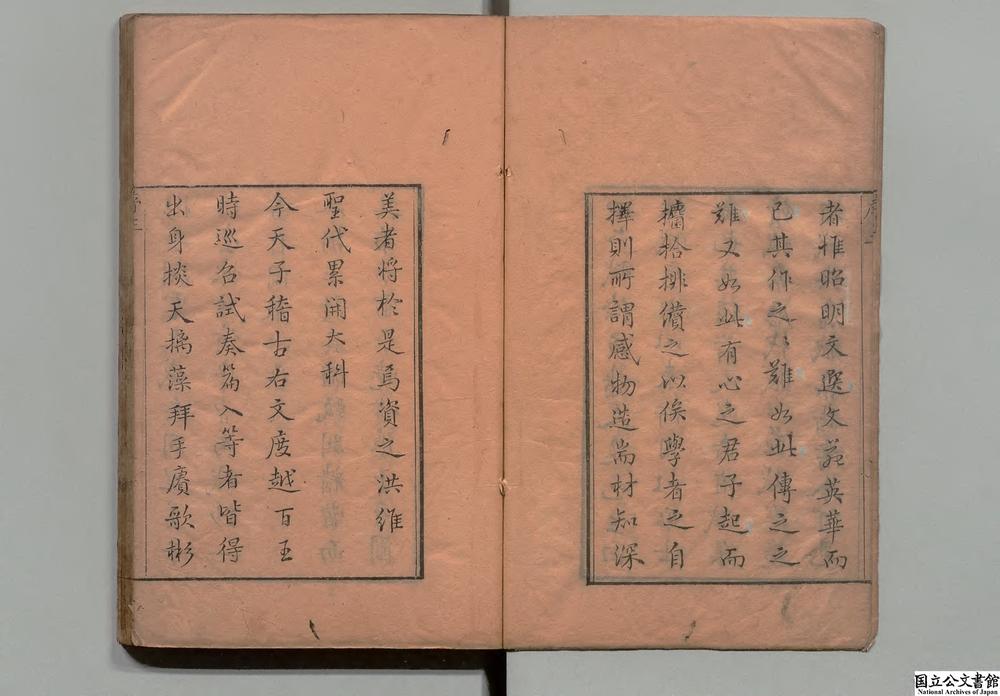 者惟昭明文選文苑英華而
已其作之之難如此傳之之
難又如此有心之君子起而
攟拾排儹之以俟學者之自
擇則所謂感物造耑材知深
美者將於是焉資之洪維
聖代累開大科
今天子稽古右文度越百王
時巡召試奏篇入等者皆得
出身掞天摛藻拜手賡歌彬
国立公文書館
National Archives of Japan